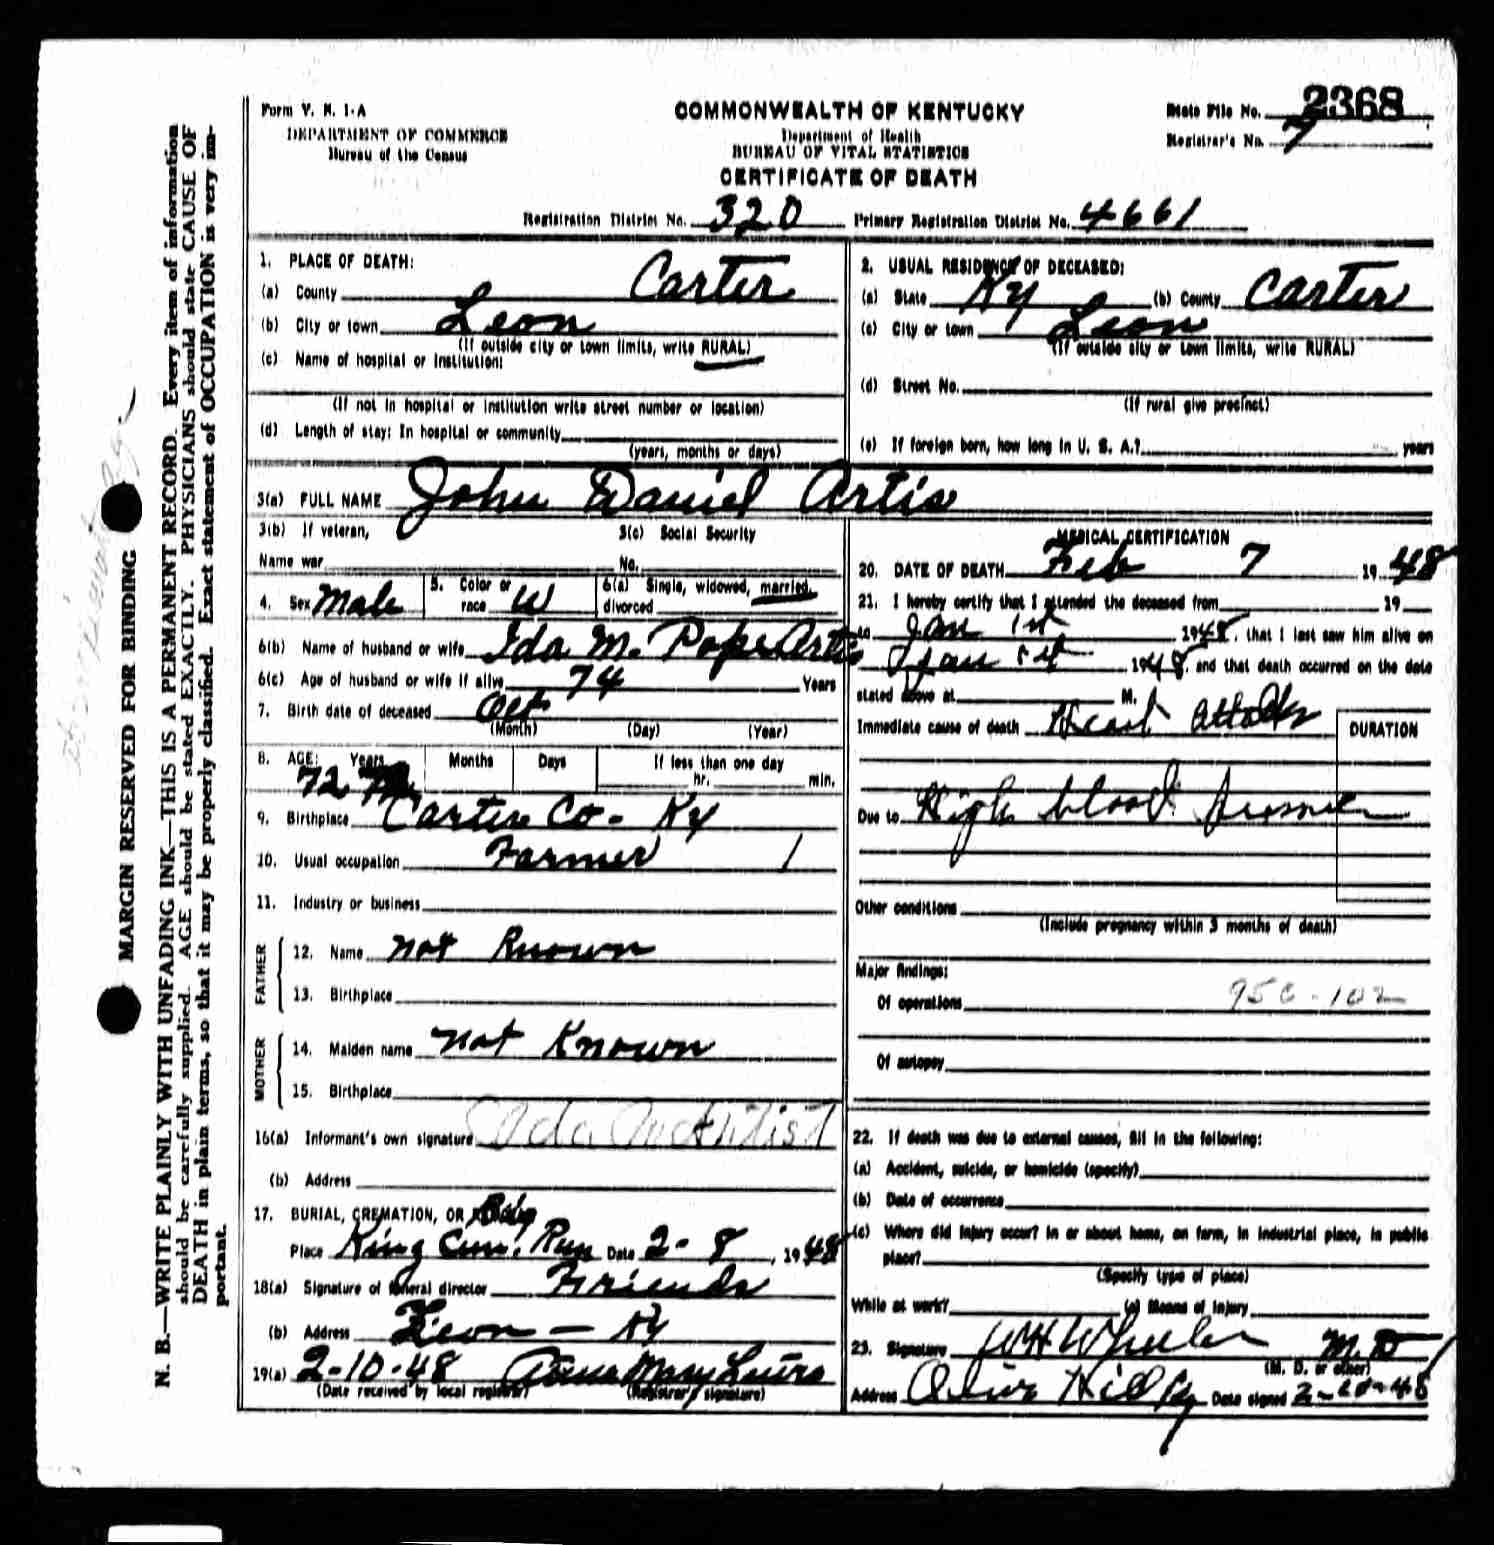 Form V. S. 1-A
DEPARTMENT OF COMMERCE
Bureau of the Census
COMMONWEALTH OF KENTUCKY
Department of Health
BUREAU OF VITAL STATISTICS
CERTIFICATE OF DEATH
State File No. 2368
Registrar's No. 7
Registration District No. 320 Primary Registration District No. 4661
1. PLACE OF DEATH:
(a) County Carter
(b) City or town Leon
(If outside city or town limits, write RURAL)
(c) Name of hospital or institution:
(If not in hospital or institution write street number or location)
(d) Length of stay: In hospital or community
(years, months or days)
2. USUAL RESIDENCE OF DECEASED:
(a) State Ky (b) County Carter
(c) City or town Leon
(If outside city or town limits, write RURAL)
(d) Street No.
(If rural give precinct)
(e) If foreign born, how long in U. S. A.? years
3(a) FULL NAME John Daniel Artis
3(b) If veteran, 3(c) Social Security
Name war No.
4. Sex Male 5. Color or race W 6(a) Single, widowed, married, divorced
6(b) Name of husband or wife Ida M. Pope Artis
6(c) Age of husband or wife if alive 74 Years
7. Birth date of deceased Oct
(Month) (Day) (Year)
8. AGE: Years Months Days If less than one day
72 hr. min.
9. Birthplace Carter Co - Ky
10. Usual occupation Farmer 1
11. Industry or business
FATHER
12. Name not Known
13. Birthplace
MOTHER
14. Maiden name not Known
15. Birthplace
16(a) Informant's own signature Ida
(b) Address
17. BURIAL, CREMATION, OR
Place King Cem. Run Date 2-8, 1948
18(a) Signature of funeral director Friends
(b) Address Leon - Ky
19(a) 2-10-48 Mary
(Date received by local registrar) (Registrar's signature)
MEDICAL CERTIFICATION
20. DATE OF DEATH Feb 7 1948
21. I hereby certify that I attended the deceased from 19
to Jan 1st 1948, that I last saw him alive on
Jan 1st 1948, and that death occurred on the date
stated above at M.
Immediate cause of death Heart attack
DURATION
Due to High blood pressure
Other conditions
(Include pregnancy within 3 months of death)
Major findings:
Of operations 95c-102
Of autopsy
22. If death was due to external causes, fill in the following:
(a) Accident, suicide, or homicide (specify)
(b) Date of occurrence
(c) Where did injury occur? In or about home, on farm, in industrial place, in public
place?
(Specify type of place)
While at work? (e) Means of injury
23. Signature WH Wheeler M.D
(M. D. or other)
Address Olive Hill Ky Date signed 2-10-48
MARGIN RESERVED FOR BINDING
N. B.—WRITE PLAINLY WITH UNFADING INK—THIS IS A PERMANENT RECORD. Every item of information
should be carefully supplied. AGE should be stated EXACTLY. PHYSICIANS should state CAUSE OF
DEATH in plain terms, so that it may be properly classified. Exact statement of OCCUPATION is very im-
portant.